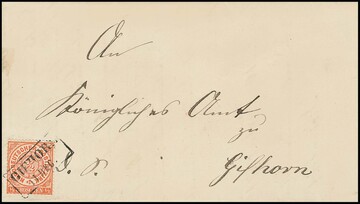 An
Königliches Amt
zu
D. S. Gifhorn
GIFHORN